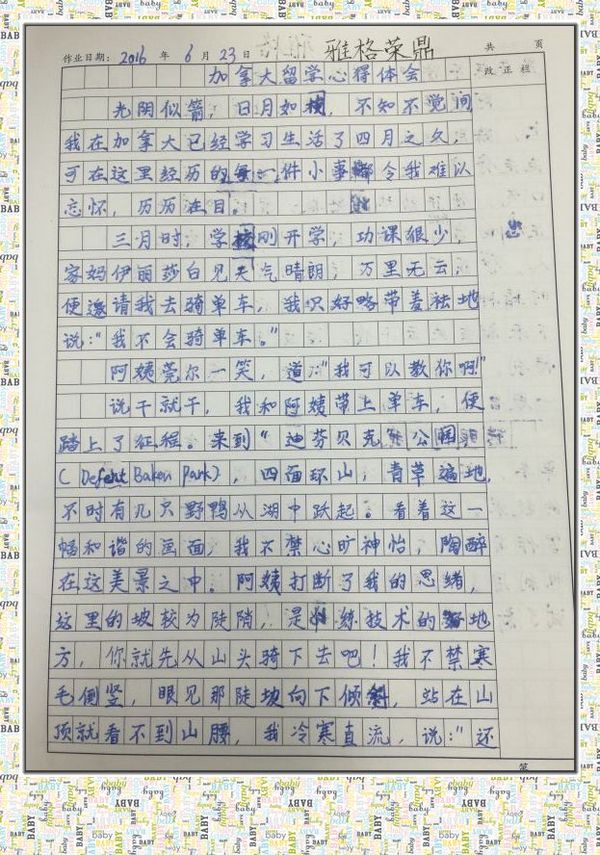 作业日期： 2016 年 6 月 23 日 雅格荣鼎 共 页
加拿大留学心得体会 改正栏
光阴似箭，日月如梭，不知不觉间
我在加拿大已经学习生活了四月之久，
可在这里经历的每一件小事都令我难以
忘怀，历历在目。
三月时，学校刚开学，功课很少，
家妈伊丽莎白见天气晴朗，万里无云，
便邀请我去骑单车，我只好略带羞祛地
说："我不会骑单车。"
阿姨莞尔一笑，道："我可以教你啊！"
说干就干，我和阿姨带上单车，便
踏上了征程。来到"迪芬贝克公园
( Park)，四面环山，青草遍地，
不时有几只野鸭从湖中跃起。看着这一
幅和谐的画面，我不禁心旷神怡，陶醉
在这美景之中。阿姨打断了我的思绪，
这里的坡较为陡峭，是练技术的地
方，你就先从山头骑下去吧！我不禁寒
毛倒竖，眼见那陡坡向下倾斜，站在山
顶就看不到山腰，我冷寒直流，说："还
第
BABY
baby